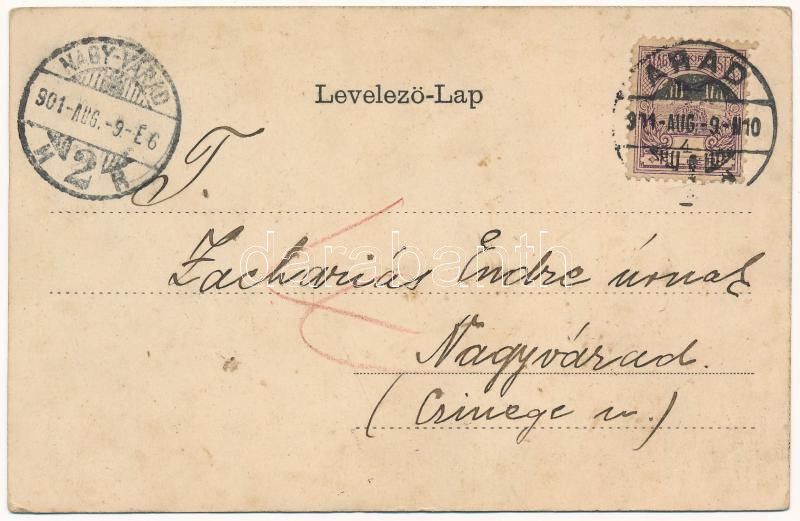 NAGY-VÁRAD
901-AUG.-9-E6
2
Levelező-Lap
ARAD
901-AUG.-9-N10
4
T.
Zachariás Endre úrnak
Nagyvárad.
(Czinege u.)
darabanth